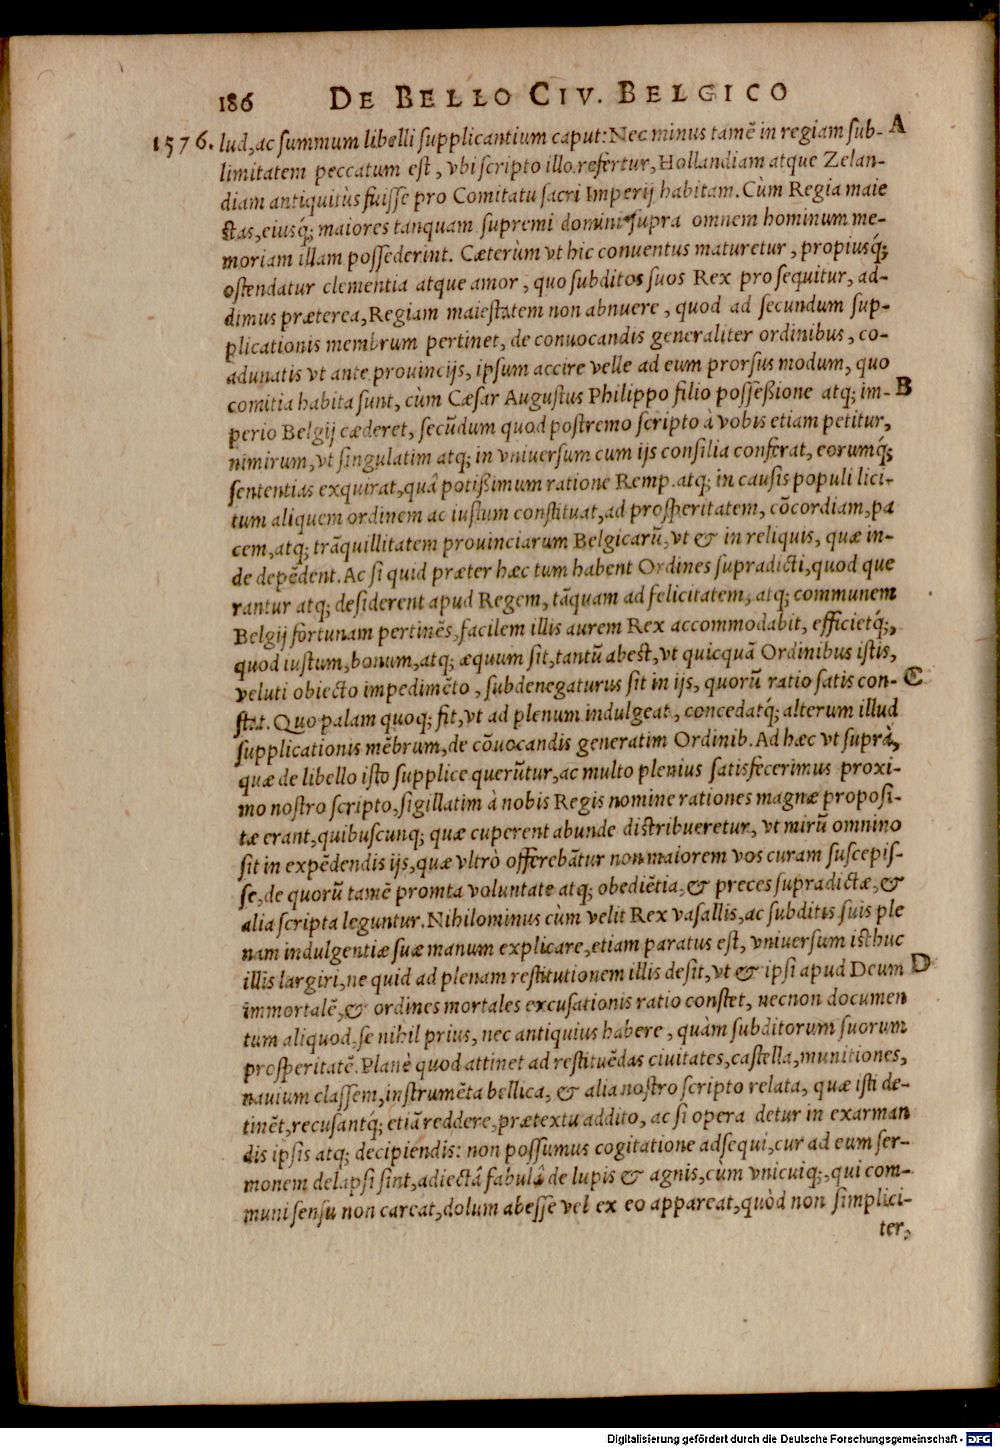 186 DE BELLO CIV. BELGICO
1576. lud, ac summum libelli supplicantium caput: Nec minus tamē in regiam sub- A
limitatem peccatum est, vbi scripto illo refertur, Hollandiam atque Zelan-
diam antiquitùs fuisse pro Comitatu sacri Imperij habitam. Cùm Regia maie
stas, eiusq́; maiores tanquam supremi domini supra omnem hominum me-
moriam illam possederint. Cæterùm vt hic conuentus maturetur, propiusq́;
ostendatur clementia atque amor, quo subditos suos Rex prosequitur, ad-
dimus præterea, Regiam maiestatem non abnuere, quod ad secundum sup-
plicationis membrum pertinet, de conuocandis generaliter ordinibus, co-
adunatis vt ante prouincijs, ipsum accire velle ad eum prorsus modum, quo
comitia habita sunt, cùm Cæsar Augustus Philippo filio possessione atq; im- B
perio Belgij cæderet, secūdum quod postremo scripto à vobis etiam petitur,
nimirum, vt singulatim atq; in vniuersum cum ijs consilia conferat, eorumq́;
sententias exquirat, quâ potissimum ratione Remp. atq; in causis populi lici-
tum aliquem ordinem ac iustum constituat, ad prosperitatem, cōcordiam, pa
cem, atq; trāquillitatem prouinciarum Belgicarū, vt & in reliquis, quæ in-
de depēdent. Ac si quid præter hæc tum habent Ordines supradicti, quod que
rantur atq; desiderent apud Regem, tāquam ad felicitatem, atq; communem
Belgij fortunam pertinēs, facilem illis aurem Rex accommodabit, efficietq́;,
quod iustum, bonum, atq; æquum sit, tantū abest, vt quicquā Ordinibus istis,
veluti obiecto impedimēto, subdenegaturus sit in ijs, quorū ratio satis con- C
stat. Quo palam quoq; fit, vt ad plenum indulgeat, concedatq́; alterum illud
supplicationis mēbrum, de cōuocandis generatim Ordinib. Ad hæc vt suprà,
quæ de libello isto supplice querūtur, ac multo plenius satisfecerimus proxi-
mo nostro scripto, sigillatim à nobis Regis nomine rationes magnæ proposi-
tæ erant, quibuscunq; quæ cuperent abunde distribueretur, vt mirū omnino
sit in expēdendis ijs, quæ vltrò offerebātur non maiorem vos curam suscepis-
se, de quorū tamē promta voluntate atq; obediētia, & preces supradictæ, &
alia scripta leguntur. Nihilominus cùm velit Rex vasallis, ac subditis suis ple
nam indulgentiæ suæ manum explicare, etiam paratus est, vniuersum isthuc
illis largiri, ne quid ad plenam restitutionem illis desit, vt & ipsi apud Deum D
immortalē, & ordines mortales excusationis ratio constet, necnon documen
tum aliquod, se nihil prius, nec antiquius habere, quàm subditorum suorum
prosperitatē. Planè quod attinet ad restituēdas ciuitates, castella, munitiones,
nauium classem, instrumēta bellica, & alia nostro scripto relata, quæ isti de-
tinēt, recusantq́; etiā reddere, prætextu addito, ac si opera detur in exarman
dis ipsis atq; decipiendis: non possumus cogitatione adsequi, cur ad eum ser-
monem delapsi sint, adiectâ fabulâ de lupis & agnis, cùm vnicuiq;, qui com-
muni sensu non careat, dolum abesse vel ex eo appareat, quòd non simplici-
ter,
Digitalisierung gefördert durch die Deutsche Forschungsgemeinschaft - DFG